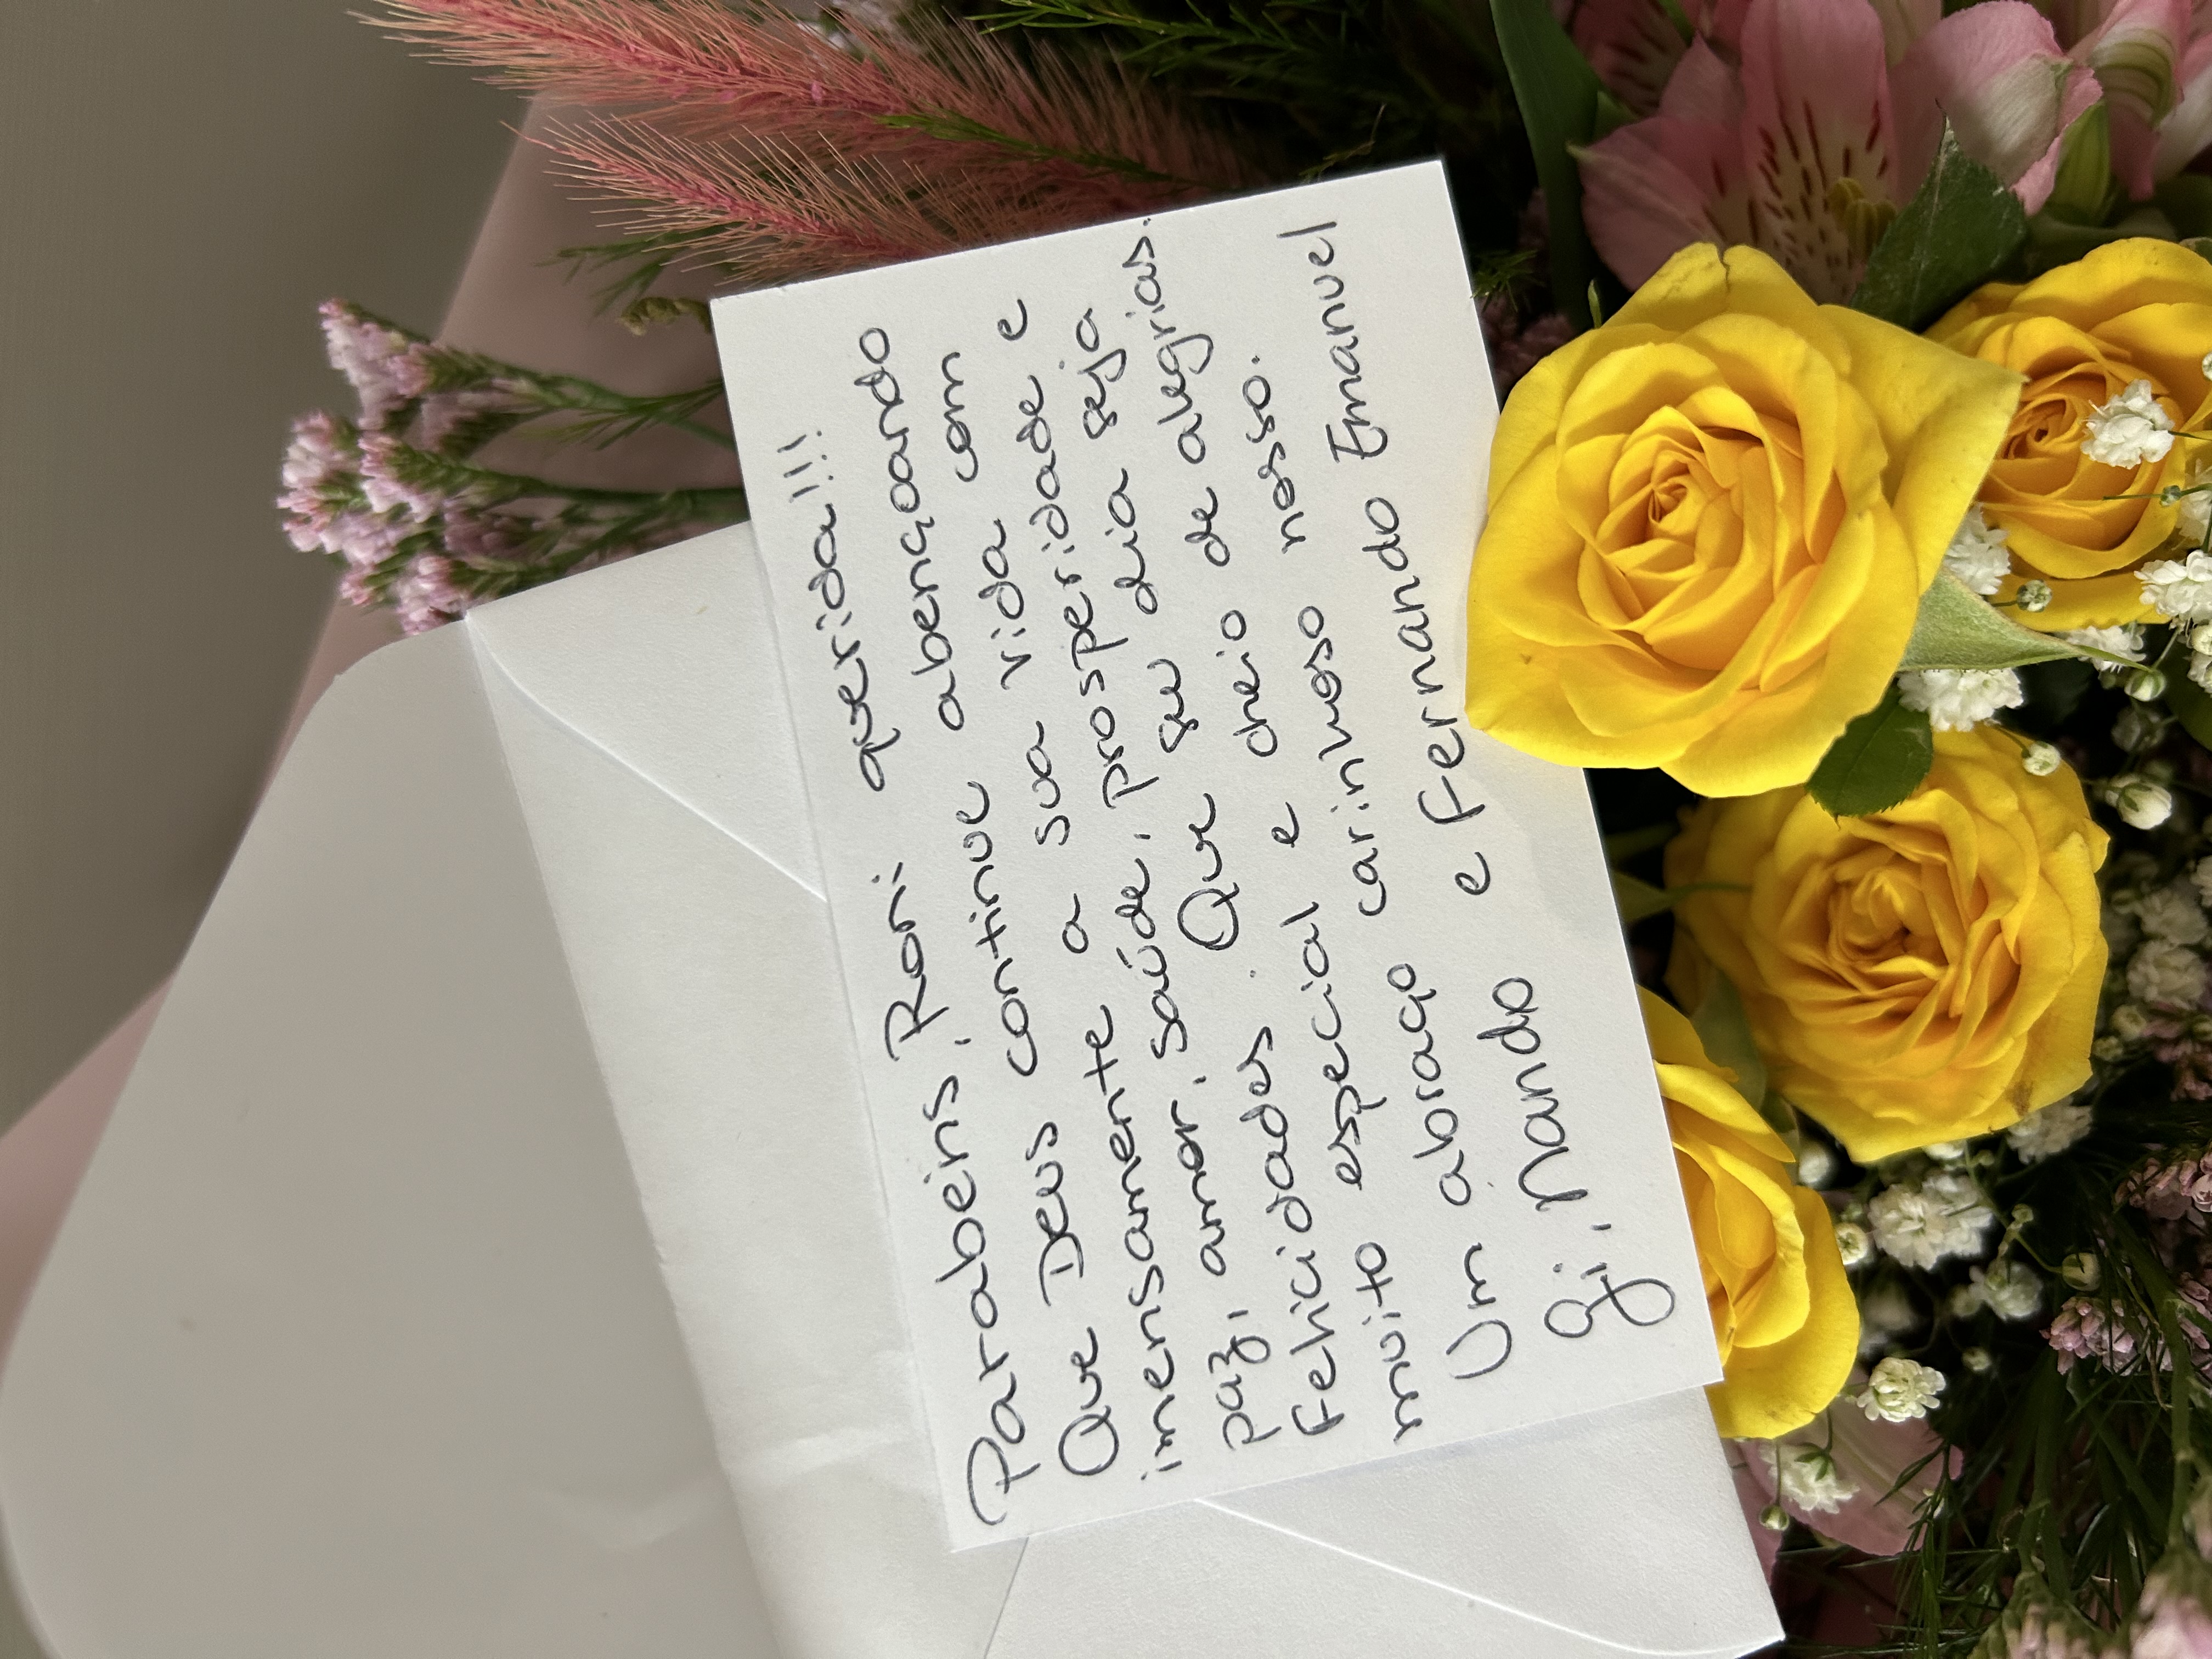 Parabéns, Roni querida!!!
Que Deus continue abençoando
imensamente a sua vida com
paz, amor, saúde, prosperidade e
felicidades. Que seu dia seja
muito especial e cheio de alegrias.
Um abraço carinhoso nosso.
Gi, Nando e Fernando Emanuel